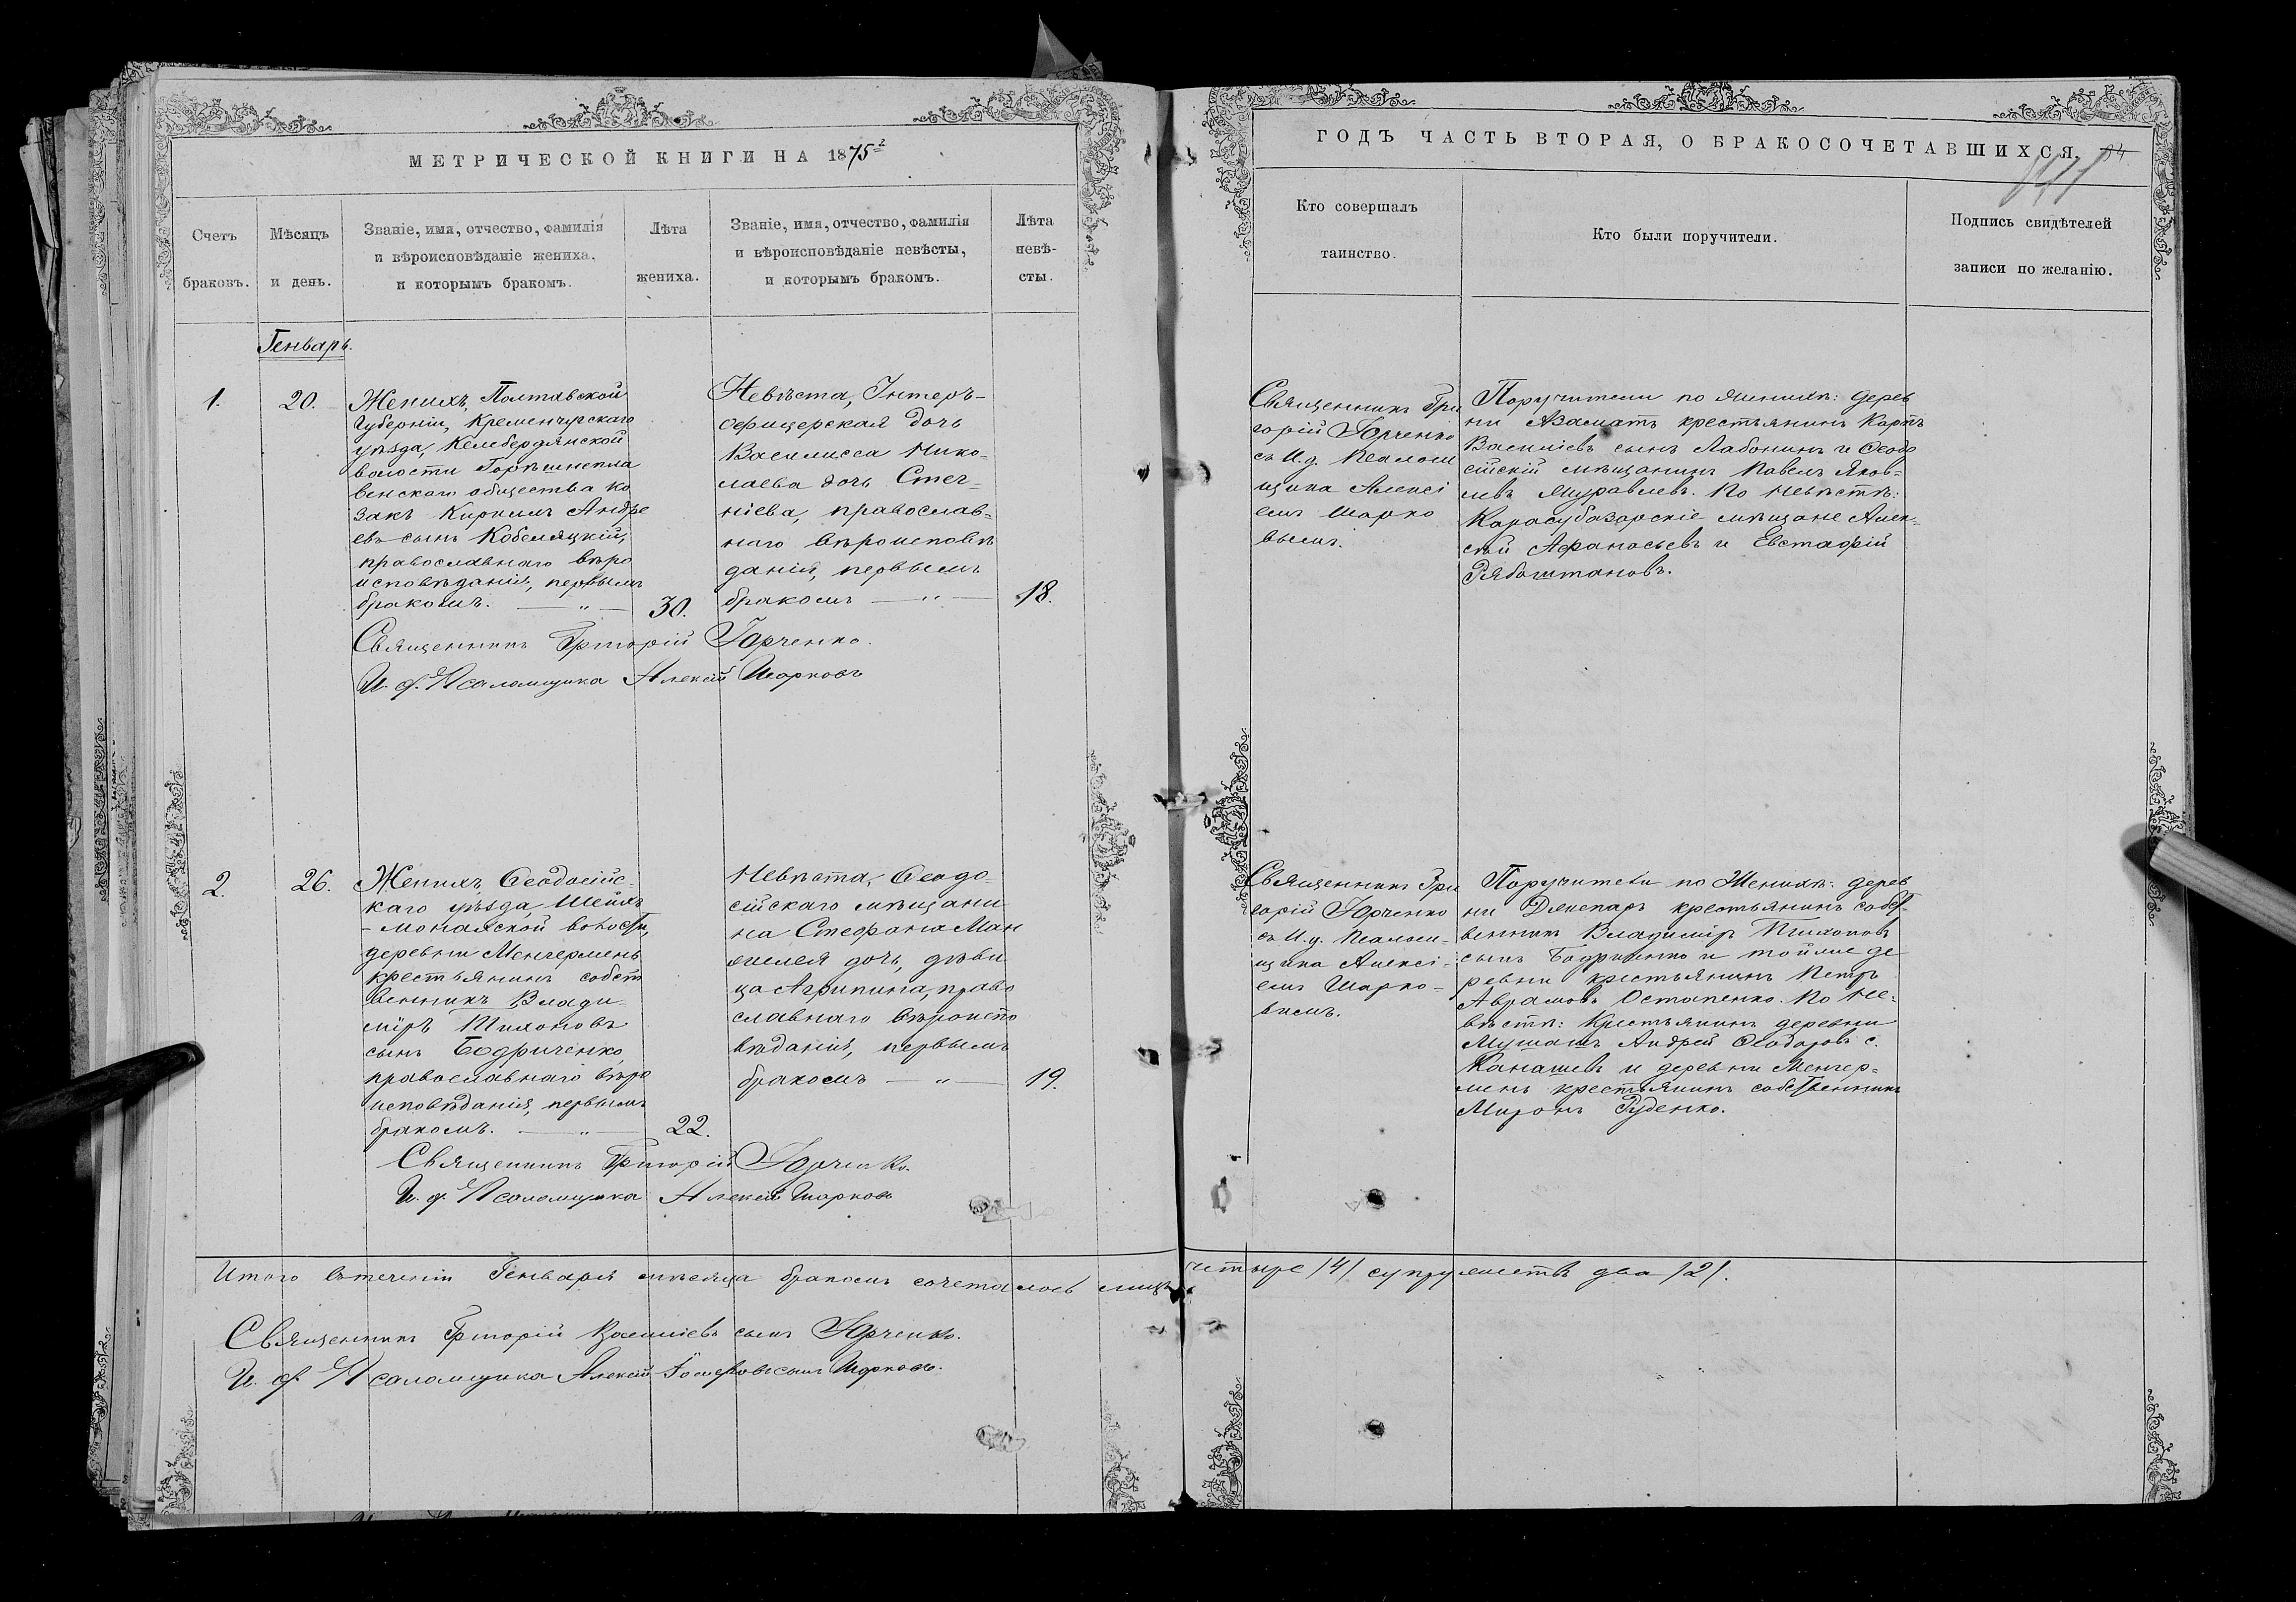 МЕТРИЧЕСКОЙ КНИГИ НА 1875
ГОДЪ ЧАСТЬ ВТОРАЯ, О БРАКОСОЧЕТАВШИХСЯ.
84
Счетъ
браковъ.
Мѣсяцъ
и день.
Званіе, имя, отчество, фамилія
и вѣроисповѣданіе жениха,
и которымъ бракомъ.
Лѣта
жениха.
Званіе, имя, отчество, фамилія
и вѣроисповѣданіе невѣсты,
и которымъ бракомъ.
Лѣта
невѣ-
сты.
Кто совершалъ
таинство.
Кто были поручители.
Подпись свидѣтелей
записи по желанію.
Генварь.
1.
20.
Женихъ, Полтавской
Губерніи, Кременчугскаго
уѣзда, Келебердянской
волости
венскаго общества ко
закъ Кириллъ Андре
евъ сынъ Кобеляцкій,
православнаго вѣро
исповѣданія, первымъ
бракомъ. — „ —
30.
Невѣста, Унтеръ-
офицерская дочь
Василисса Нико-
лаева дочь
православ-
наго вѣроисповѣ
данія, первымъ
бракомъ — „ —
18.
Священникъ Гри
горій Юрченко
съ И. д. Псалом
щика Алексі
емъ Шарко
вымъ.
Поручители по женихѣ: дерев
ни Азаматъ крестьянинъ Карпъ
Василіевъ сынъ Лабонинъ и Ѳеодо
сійскій мѣщанинъ Павелъ Яков-
левъ Журавлевъ. По невѣстѣ:
Карасубазарскіе мѣщане Алек-
сѣй Афанасьевъ и Евстафій
Рябоштановъ.
Священникъ Григорій Юрченко.
И. д. Псаломщика Алексій Шарковъ
2.
26.
Женихъ, Ѳеодосійс-
каго уѣзда, Шейхъ
-Монайской волости,
деревни Менгермень
крестьянинъ собст
венникъ Влади-
міръ Тихоновъ
сынъ Бодриченко,
православнаго вѣро
исповѣданія, первымъ
бракомъ. — „ —
22.
Невѣста, Ѳеодо-
сійскаго мѣщани
на Стефана Ман
желея дочь, дѣви
ца Агрипина, право
славнаго вѣроиспо
вѣданія, первымъ
бракомъ — „ —
19.
Священникъ Гри
горій Юрченко
съ И. д. Псалом-
щика Алексі-
емъ Шарко-
вымъ.
Поручители по Женихѣ: дерев
ни крестьянинъ собст-
венникъ Владиміръ Тихоновъ
сынъ Бодриченко и тойже де
ревни крестьянинъ Петръ
Аврамовъ Остапенко. По Не-
вѣстѣ: Крестьянинъ деревни
Мушашъ Андрей Ѳеодоровъ с.
Канашевъ и деревни Менгер-
мень крестьянинъ собственникъ
Миронъ Руденко.
Священникъ Григорій Юрченко.
И. д. Псаломщика Алексій Шарковъ
Итого въ теченіи Генваря мѣсяца бракомъ сочеталось лицъ четыре /4/ супружествъ два /2/.
Священникъ Григорій Василіевъ сынъ Юрченко.
И. д. Псаломщика Алексій сынъ Шарковъ.